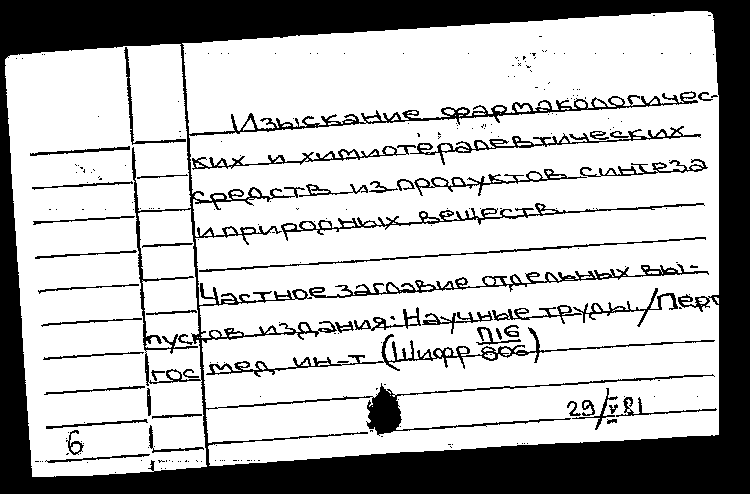 Изыскание фармакологичес-
ких и химиотерапевтических
средств из продуктов синтеза
и природных веществ.
Частное заглавие отдельных вы-
пусков издания: Научные труды. / Перм
гос мед. ин-т (Шифр П16/806)
29/VI 81
6